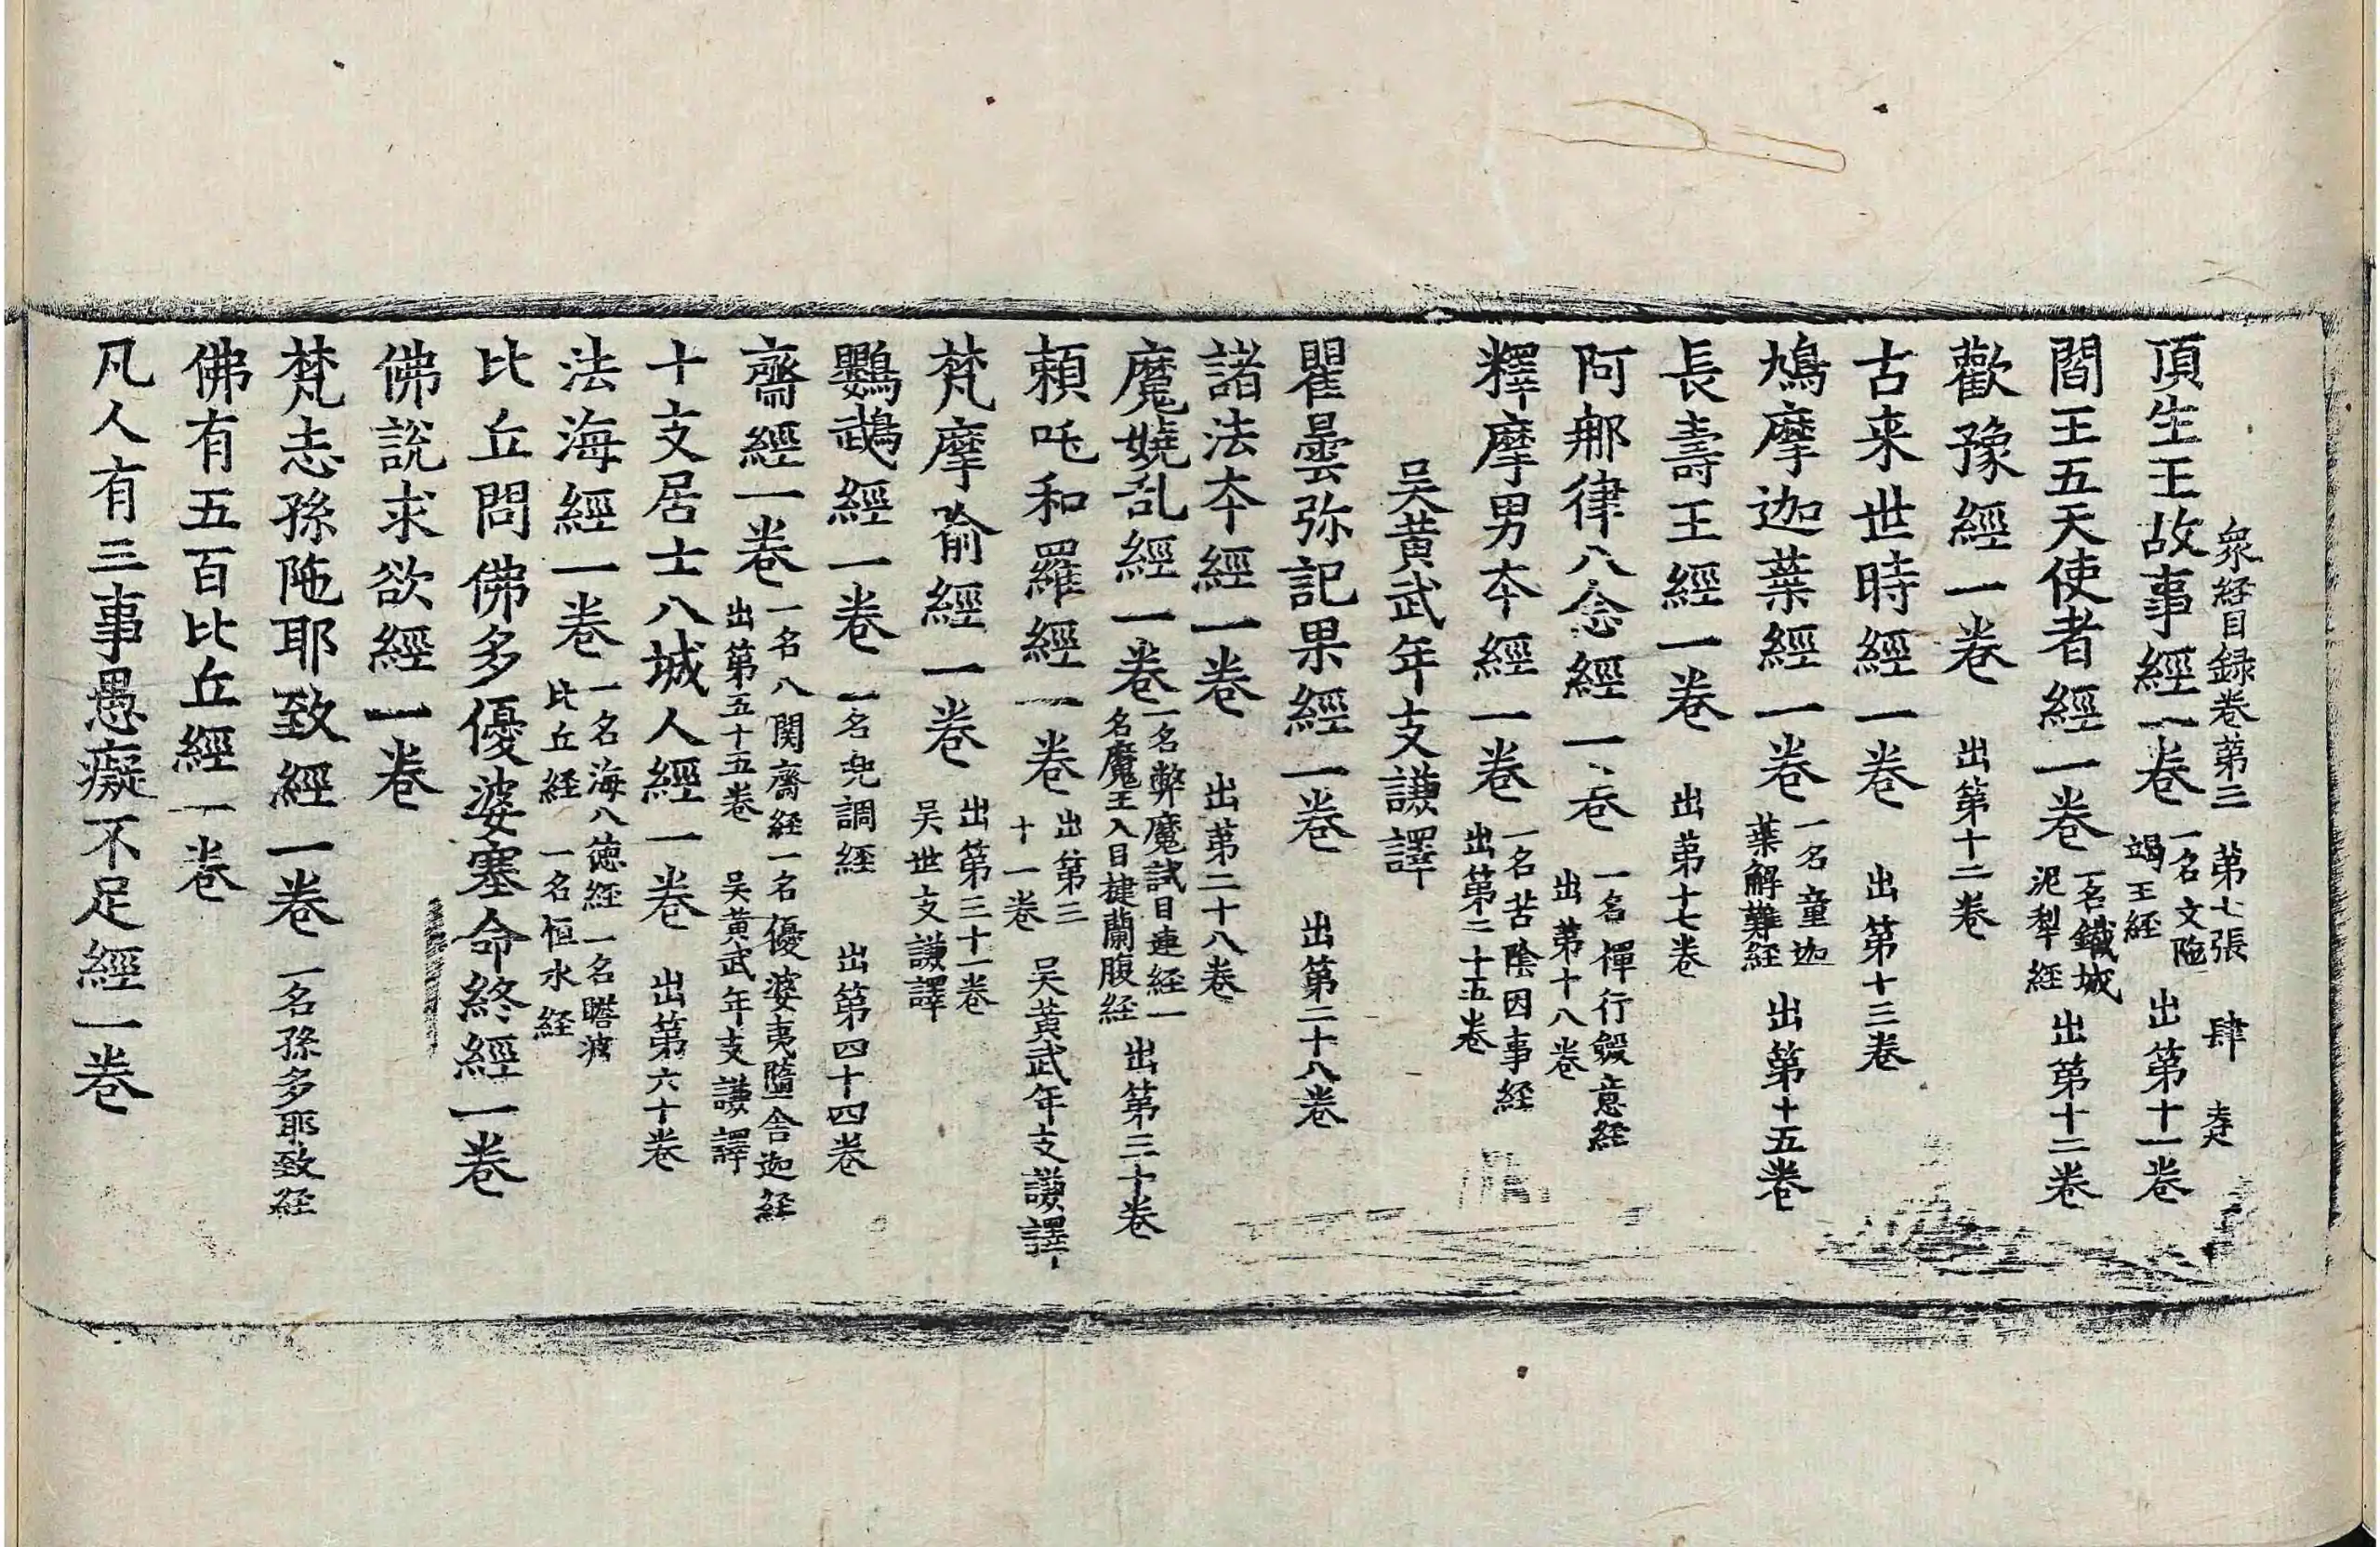 衆経目録卷第三　第七張　肆
頂生王故事經一卷 一名文陁竭王経 出第十一卷
閻王五天使者經一卷 一名鐵城泥犁経 出第十二卷
歡豫經一卷 出第十二卷
古来世時經一卷 出第十三卷
鳩摩迦葉經一卷 一名童迦葉解難経 出第十五卷
長壽王經一卷 出第十七卷
阿那律八念經一卷 一名禪行斂意経 出第十八卷
釋摩男夲經一卷 一名苦陰因事経 出第二十五卷
吴黄武年支謙譯
瞿曇弥記果經一卷 出第二十八卷
諸法夲經一卷 出第二十八卷
魔嬈乱經一卷 一名弊魔試目連経一名魔王入目揵蘭腹経 出第三十卷
頼吒和羅經一卷 出第三十一卷 吴黄武年支謙譯
梵摩喻經一卷 出第三十一卷 吴世支謙譯
鸚鵡經一卷 一名兜調経 出第四十四卷
齋經一卷 一名八関齋経一名優婆夷墮舎迦経 出第五十五卷 吴黄武年支謙譯
十支居士八城人經一卷 出第六十卷
法海經一卷 一名海八徳経 一名瞻波比丘経 一名恒水経
比丘問佛多優婆塞命終經一卷
佛說求欲經一卷
梵志孫陁耶致經一卷 一名孫多耶致経
佛有五百比丘經一卷
凡人有三事愚癡不足經一卷